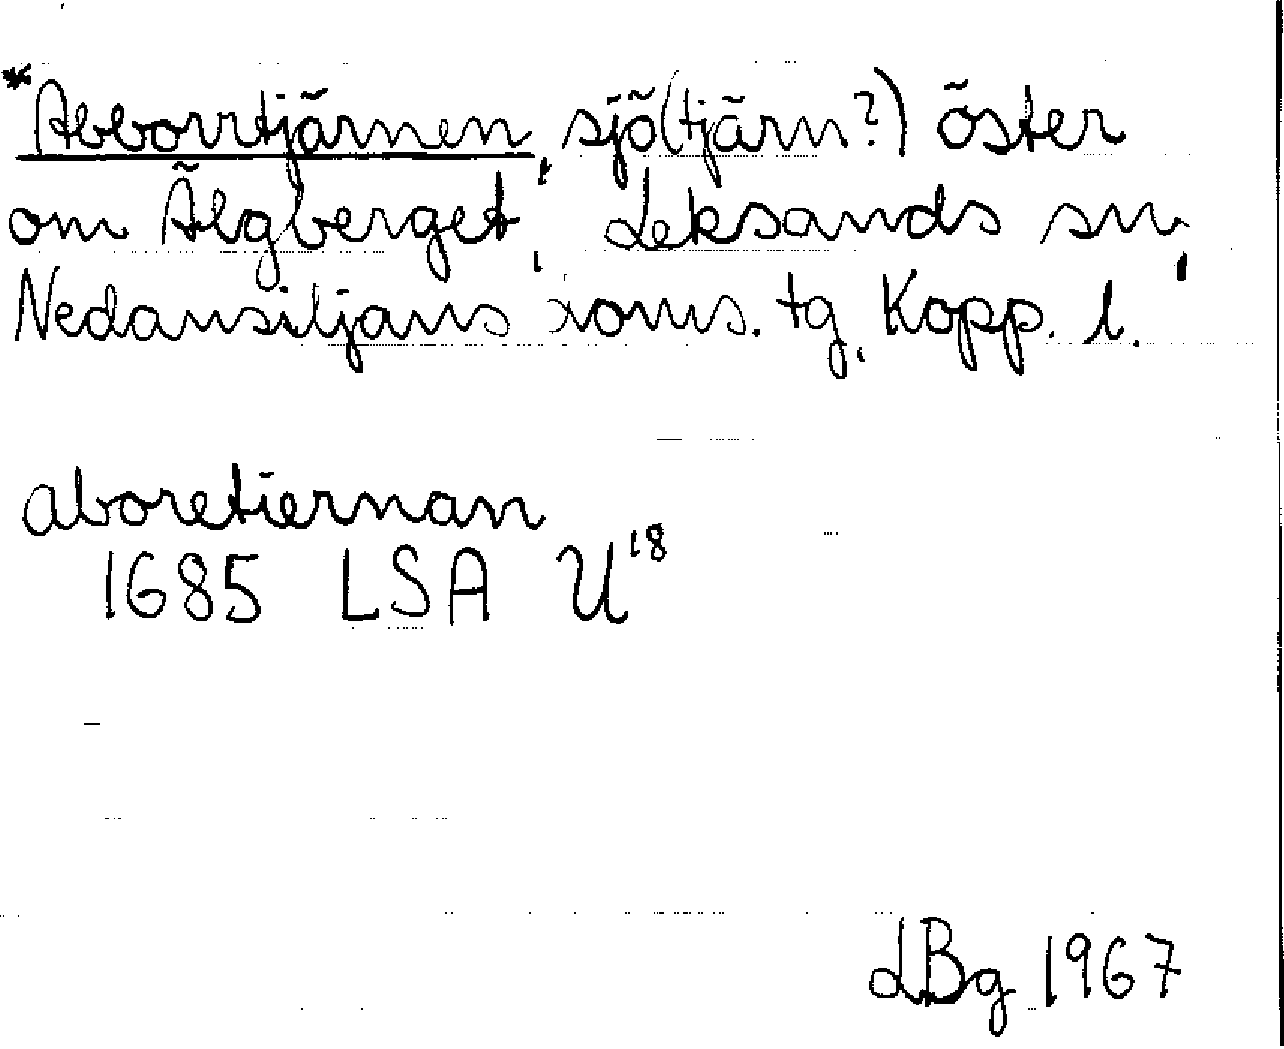 *Abborrtjärnen, sjö(tjärn?) öster
om Älgberget, Leksands sn,
Nedansiljans doms. tg, Kopp. l.
aboretiernan
1685 LSA U18
LBg 1967